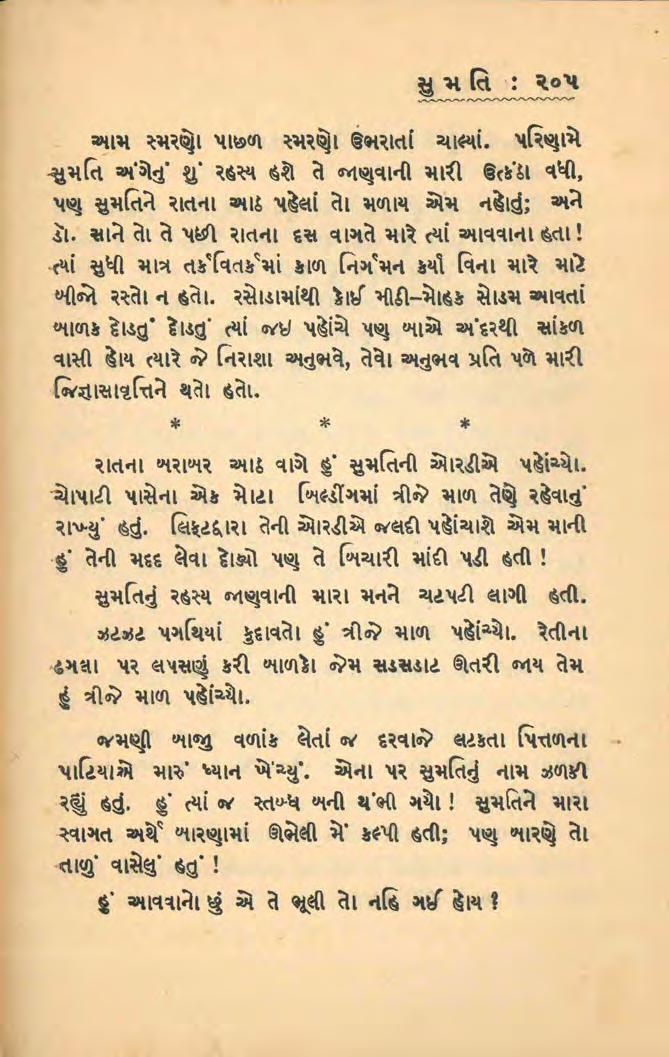 સુ મ તિ : ૨૦૫
આમ સ્મરણો પાછળ સ્મરણો ઉભરાતાં ચાલ્યાં. પરિણામે
સુમતિ અંગેનું શું રહસ્ય હશે તે જાણવાની મારી ઉત્કંઠા વધી,
પણ સુમતિને રાતના આઠ પહેલાં તો મળાય એમ નહોતું; અને
ડૉ. સાને તો તે પછી રાતના દસ વાગતે મારે ત્યાં આવવાના હતા !
ત્યાં સુધી માત્ર તર્કવિતર્કમાં કાળ નિર્ગમન કર્યા વિના મારે માટે
બીજો રસ્તો ન હતો. રસોડામાંથી કોઈ મીઠી–મોહક સોડમ આવતાં
બાળક દોડતું દોડતું ત્યાં જઇ પહોંચે પણ બાએ અંદરથી સાંકળ
વાસી હોય ત્યારે જે નિરાશા અનુભવે, તેવો અનુભવ પ્રતિ પળે મારી
જિજ્ઞાસાવૃત્તિને થતો હતો.
* * *
રાતના બરાબર આઠ વાગે હું સુમતિની ઓરડીએ પહોંચ્યો.
ચોપાટી પાસેના એક મોટા બિલ્ડીંગમાં ત્રીજે માળ તેણે રહેવાનું
રાખ્યું હતું. લિફ્ટદ્વારા તેની ઓરડીએ જલદી પહોંચાશે એમ માની
હું તેની મદદ લેવા દોડ્યો પણ તે બિચારી માંદી પડી હતી !
સુમતિનું રહસ્ય જાણવાની મારા મનને ચટપટી લાગી હતી.
ઝટઝટ પગથિયાં કુદાવતો હું ત્રીજે માળ પહોંચ્યો. રેતીના
ઢગલા પર લપસણું કરી બાળકો જેમ સડસડાટ ઊતરી જાય તેમ
હું ત્રીજે માળ પહોંચ્યો.
જમણી બાજુ વળાંક લેતાં જ દરવાજે લટકતા પિત્તળના
પાટિયાએ મારું ધ્યાન ખેંચ્યું. એના પર સુમતિનું નામ ઝળકી
રહ્યું હતું. હું ત્યાં જ સ્તબ્ધ બની થંભી ગયો ! સુમતિને મારા
સ્વાગત અર્થે બારણામાં ઊભેલી મેં કલ્પી હતી; પણ બારણે તો
તાળું વાસેલું હતું !
હું આવવાનો છું એ તે ભૂલી તો નહિ ગઈ હોય ?